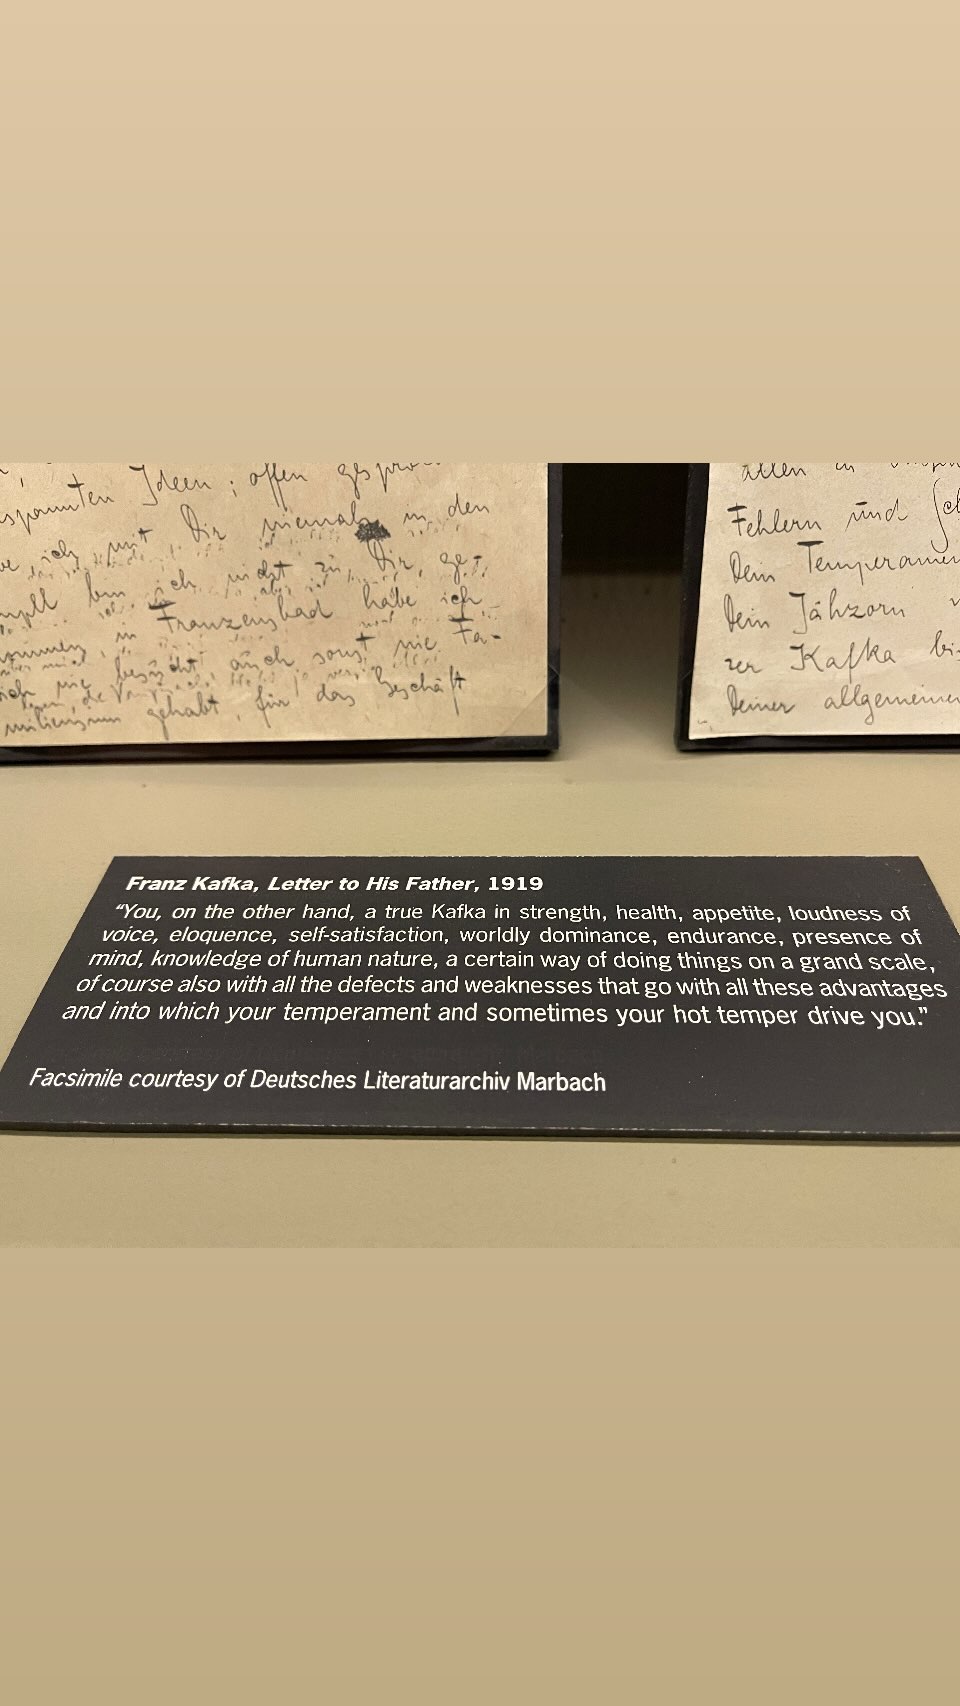 spannten Ideen; offen gespro
be ich mit Dir niemals, in den
mpll bin ich nicht zu Dir ge-
kommen, in Franzensbad habe ich
ich nie besucht auch sonst nie Fa-
miliensinn gehabt, für das Geschäft
allen in
Fehlern und
Dein Temperamen
Dein Jähzorn
zer Kafka bis
Deiner allgemeinen
Franz Kafka, Letter to His Father, 1919
“You, on the other hand, a true Kafka in strength, health, appetite, loudness of
voice, eloquence, self-satisfaction, worldly dominance, endurance, presence of
mind, knowledge of human nature, a certain way of doing things on a grand scale,
of course also with all the defects and weaknesses that go with all these advantages
and into which your temperament and sometimes your hot temper drive you.”
Facsimile courtesy of Deutsches Literaturarchiv Marbach